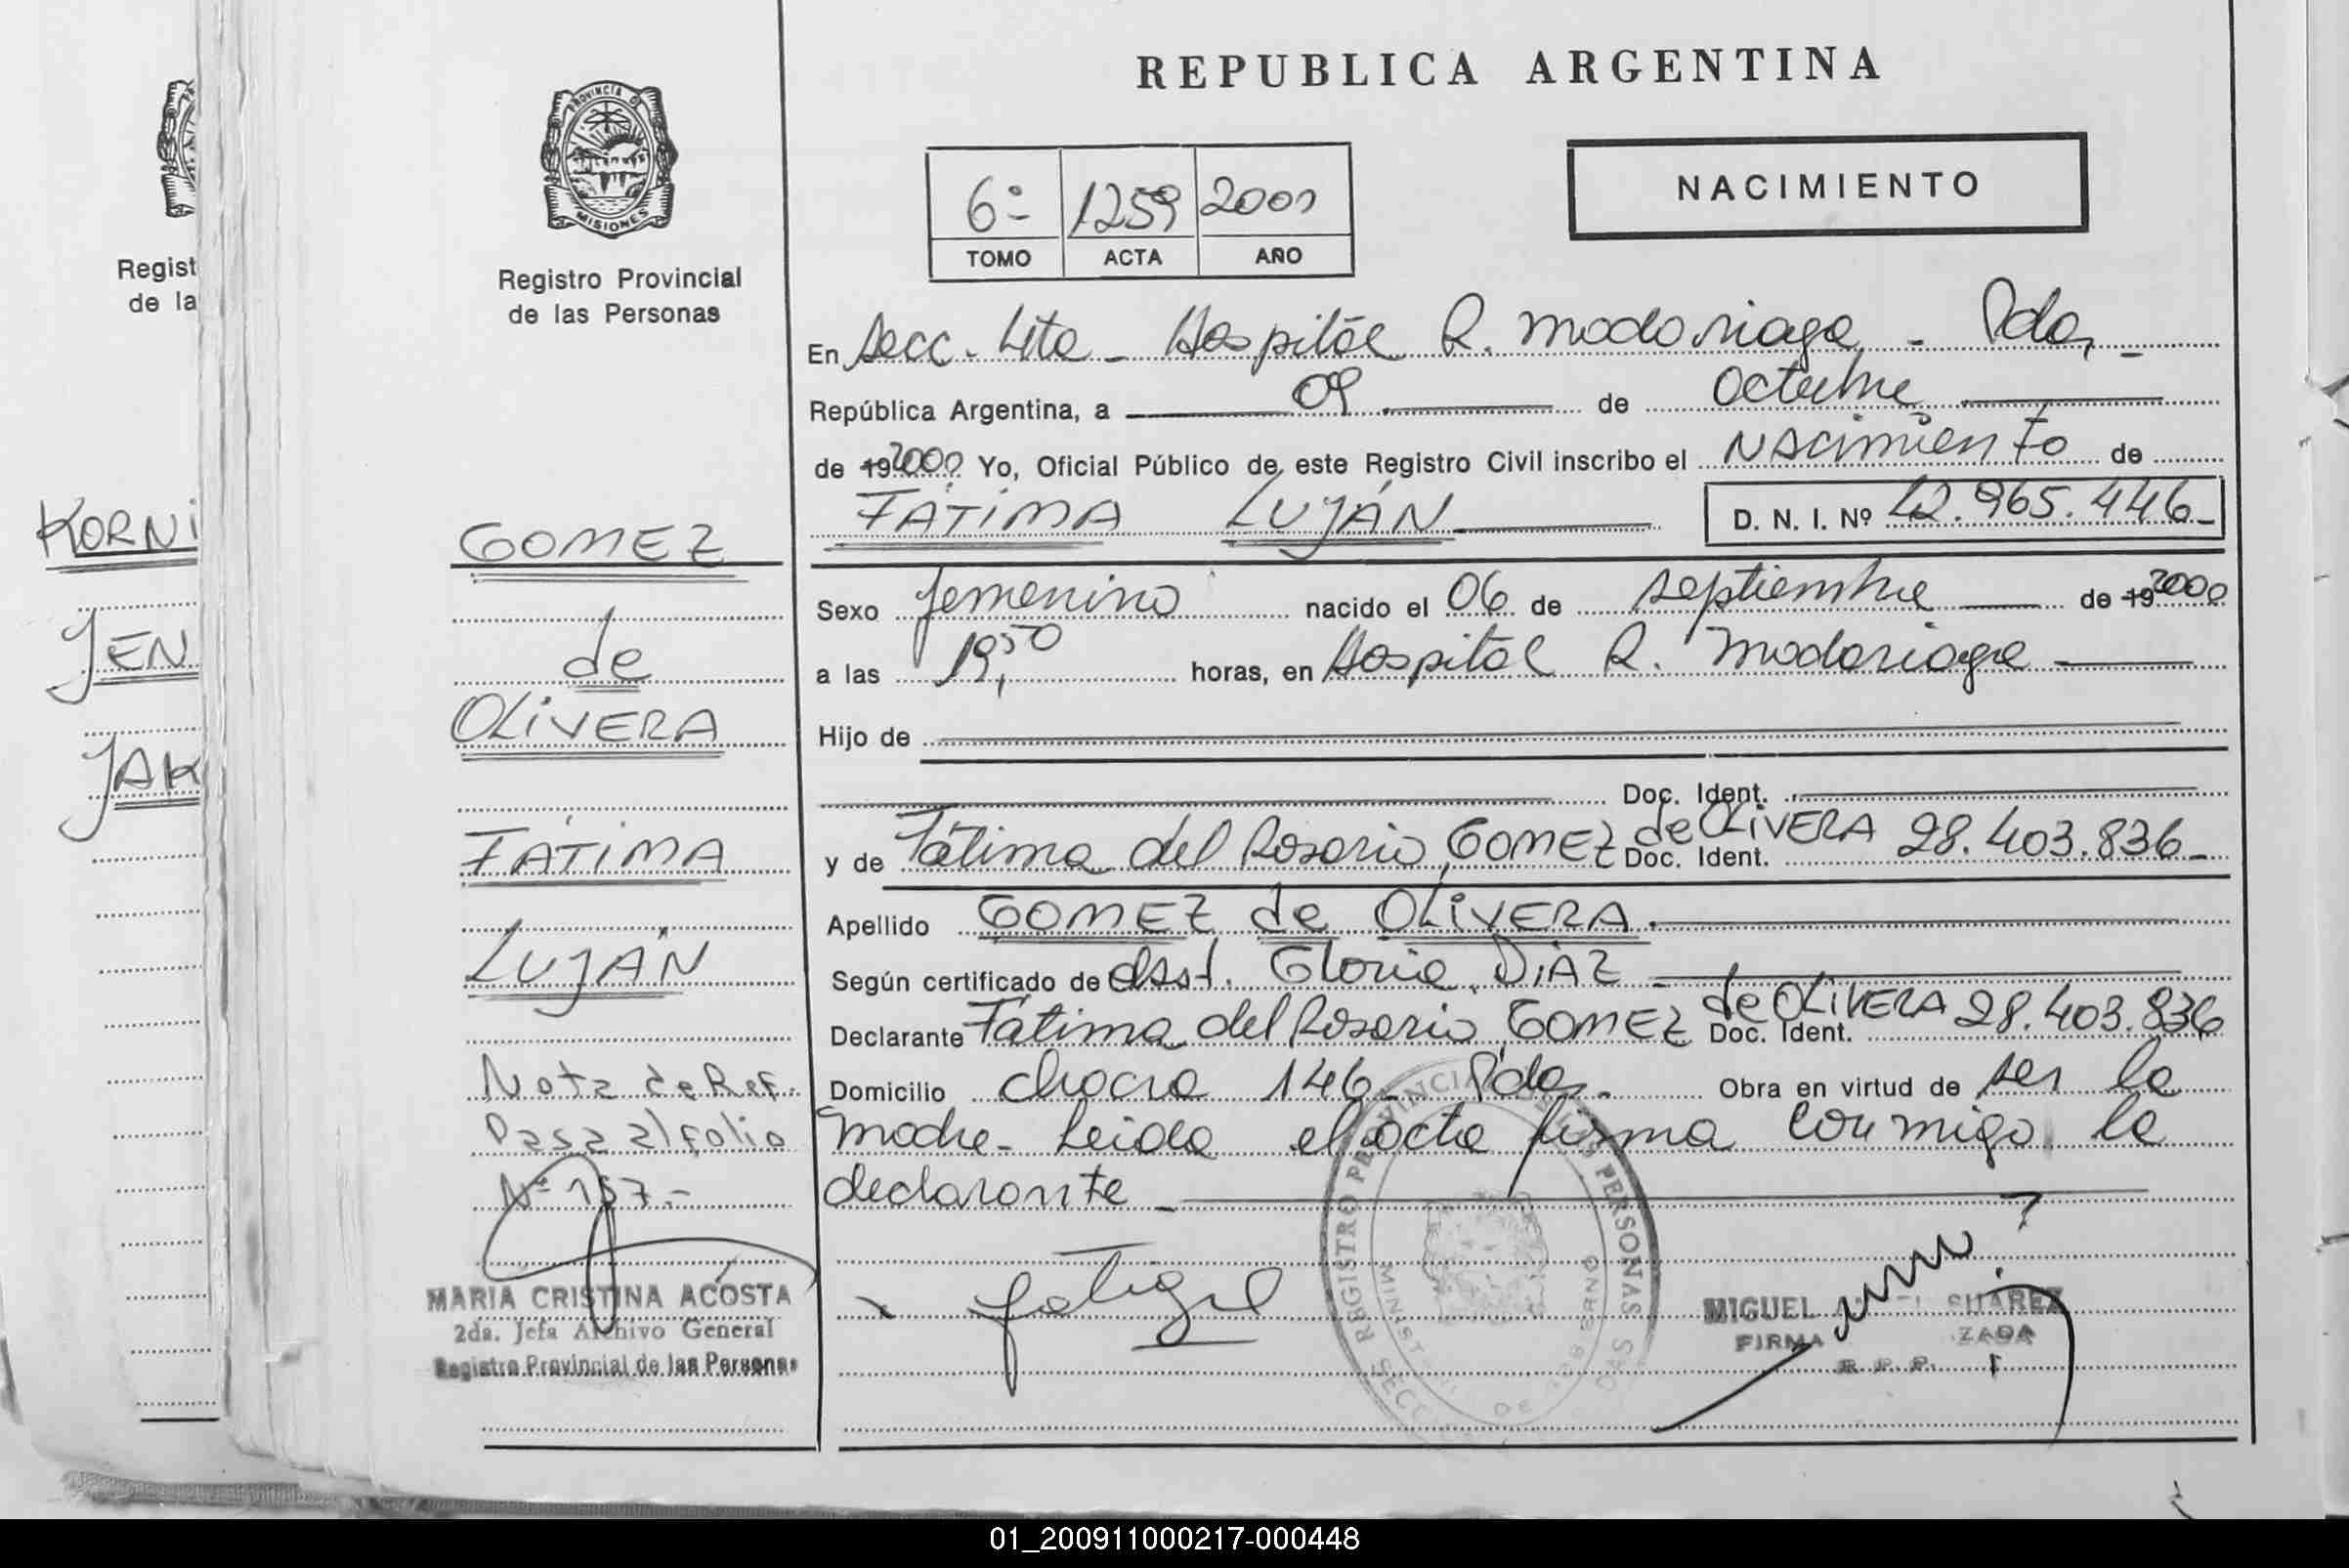 REPUBLICA ARGENTINA
PROVINCIA DE
MISIONES
Registro Provincial
de las Personas
6º 1259 2000
TOMO ACTA AÑO
NACIMIENTO
En Secc. Lta - Hospital R. Madariaga - Pdas -
República Argentina, a 09 de octubre
de 19 2000 Yo, Oficial Público de este Registro Civil inscribo el NACimienTo de
FÁTiMA LUJÁN D. N. I. Nº 42.965.446-
Sexo femenino nacido el 06 de septiembre de 19 2000
a las 19,50 horas, en Hospital R. Madariaga
Hijo de
Doc. Ident.
y de Fátima del Rosario GOMEZ de OLiVERA Doc. Ident. 28.403.836-
Apellido GOMEZ de OLiVERA.
Según certificado de Asst. Gloria DiAZ
Declarante Fátima del Rosario GOMEZ de OLiVERA Doc. Ident. 28.403.836
Domicilio chacra 146 Pdas. Obra en virtud de ser la
madre- Leida el acta firma conmigo la
declarante
GOMEZ
de
OLiVERA
FÁTiMA
LUJÁN
Nota de Ref.
Pasa a/ folio
Nº 157.-
MARIA CRISTINA ACOSTA
2da. Jefa Archivo General
Registro Provincial de las Personas
REGISTRO PROVINCIAL DE LAS PERSONAS
MIGUEL SUAREZ
FIRMA ZADA
R.P.P.
Regist
de la
KORNi
JEN
JAK
01_200911000217-000448